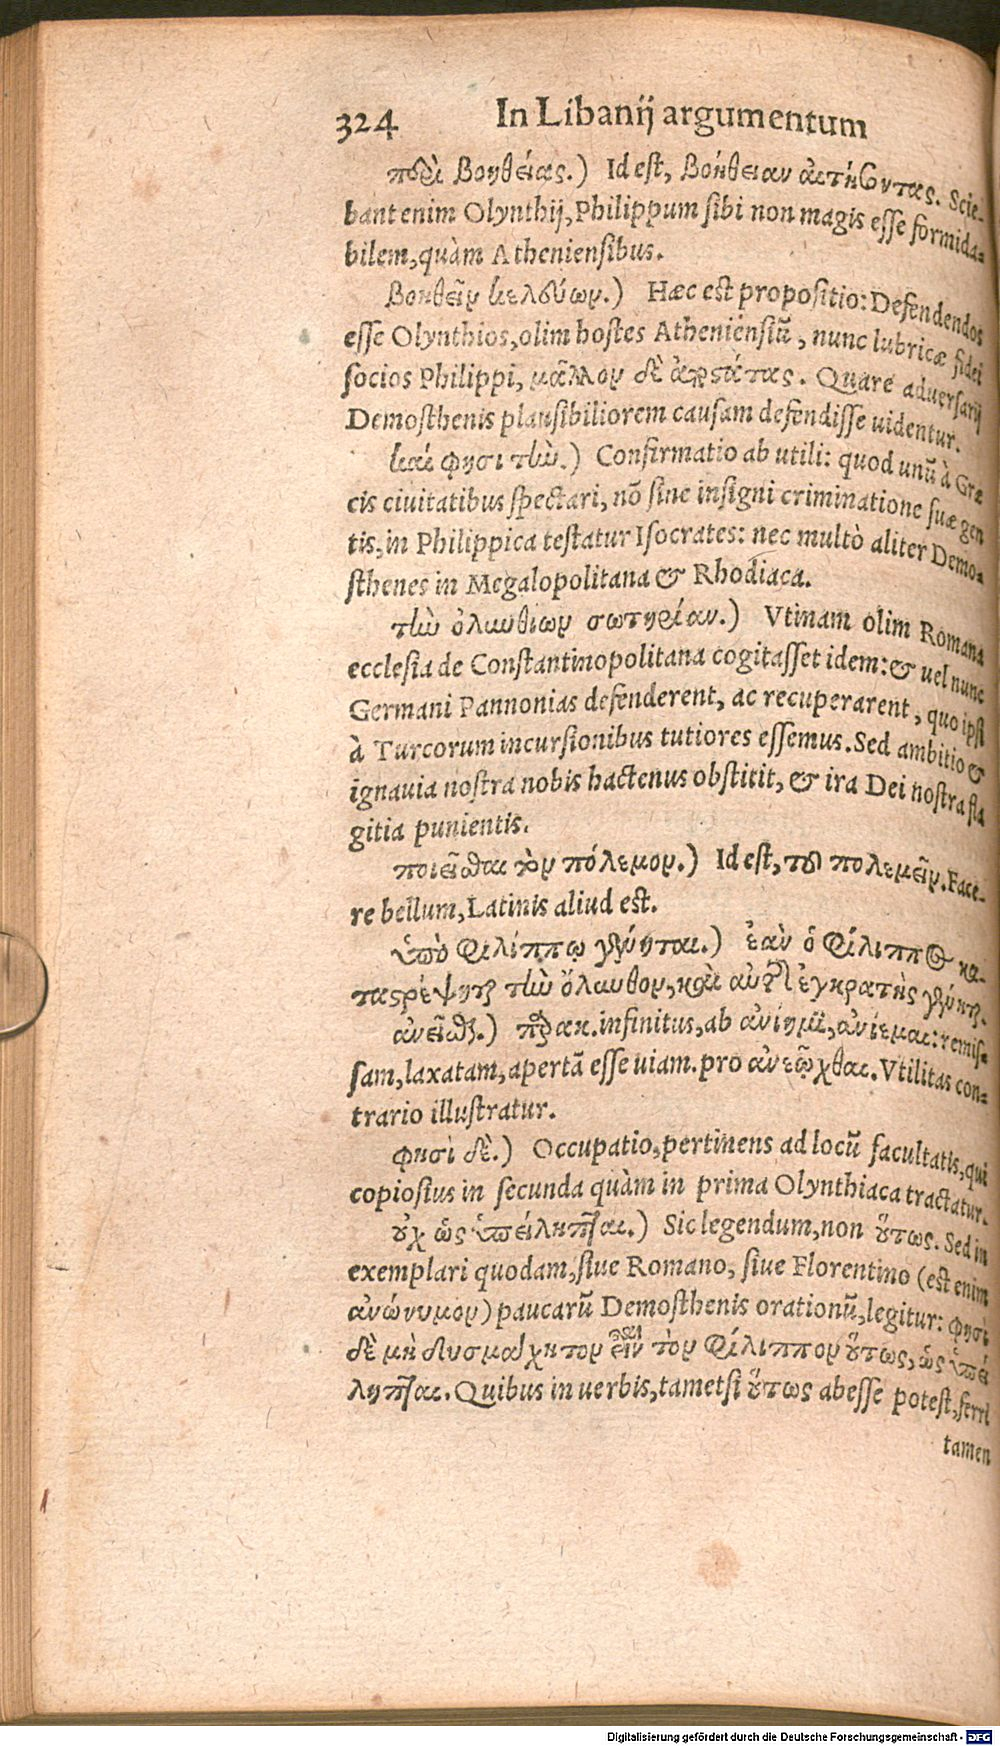 324 In Libanij argumentum
περὶ βοηθείας.) Id est, βοήθειαν αἰτήσοντας. Scie-
bant enim Olynthij, Philippum sibi non magis esse formida-
bilem, quàm Atheniensibus.
βοηθεῖν κελεύων.) Hæc est propositio: Defendendos
esse Olynthios, olim hostes Atheniensiũ, nunc lubricæ fidei
socios Philippi, μᾶλλον δὲ ἀποστάτας. Quare aduersarij
Demosthenis plausibiliorem causam defendisse uidentur.
καί φησι τὴν.) Confirmatio ab utili: quod unũ à Græ
cis ciuitatibus spectari, nõ sine insigni criminatione suæ gen
tis, in Philippica testatur Isocrates: nec multò aliter Demo-
sthenes in Megalopolitana & Rhodiaca.
τὴν ὀλυνθίων σωτηρίαν.) Vtinam olim Romana
ecclesia de Constantinopolitana cogitasset idem: & uel nunc
Germani Pannonias defenderent, ac recuperarent, quo ipsi
à Turcorum incursionibus tutiores essemus. Sed ambitio &
ignauia nostra nobis hactenus obstitit, & ira Dei nostra fla
gitia punientis.
ποιεῖσθαι τὸν πόλεμον.) Id est, τοῦ πολεμεῖν. Face-
re bellum, Latinis aliud est.
ὑπὸ Φιλίππῳ γένηται.) ἐὰν ὁ Φίλιππος κα-
ταστρέψηται τὴν ὄλυνθον, καὶ αὐτῆς ἐγκρατὴς γένηται.
ἀνεῖσθαι.) παρακ. infinitus, ab ἀνίημι, ἀνίεμαι: remis-
sam, laxatam, apertã esse uiam. pro ἀνεῷχθαι. Vtilitas con-
trario illustratur.
φησὶ δὲ.) Occupatio, pertinens ad locũ facultatis, qui
copiosius in secunda quàm in prima Olynthiaca tractatur.
οὐχ ὡς ὑπείληπται.) Sic legendum, non οὕτως. Sed in
exemplari quodam, siue Romano, siue Florentino (est enim
ἀνώνυμον) paucarũ Demosthenis orationũ, legitur: φησὶ
δὲ μὴ δυσμάχητον εἶναι τὸν Φίλιππον οὕτως, ὡς ὑπεί
ληπται. Quibus in uerbis, tametsi οὕτως abesse potest, ferri
tamen
Digitalisierung gefördert durch die Deutsche Forschungsgemeinschaft - DFG